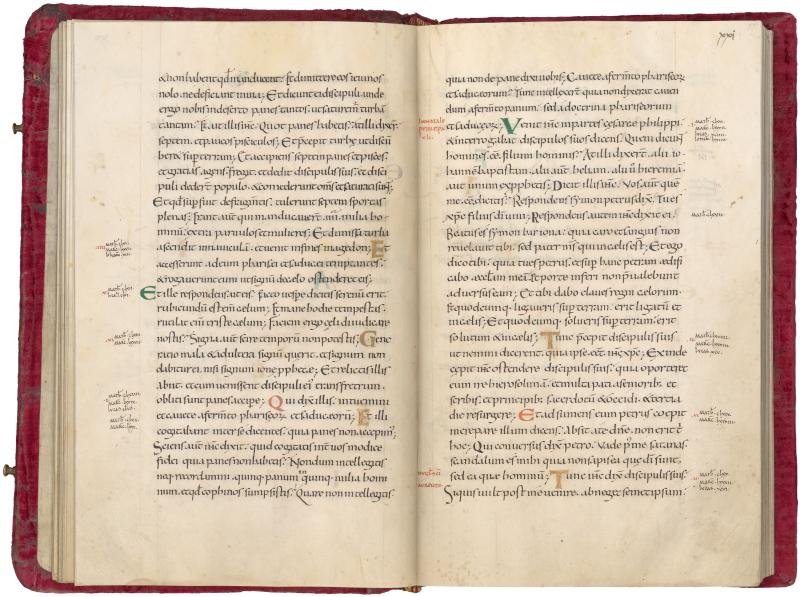 & non habent qđ manducent. Et dimittere eos ieiunos
nolo. ne deficiant in uia; Et dicunt ei discipuli. unde
ergo nobis in deserto panes tantos. ut saturem turbā
tantam; Et ait illis ihc. Quot panes habetis; At illi dixer
septem. et paucos pisciculos; Et p̄cepit turbę ut discū
beret sup terram; Et accipiens septem panes et pisces.
et gratias agens. fregit. et dedit discipulis suis. et disci
puli dedert populo. & comederunt oms et saturati sunt;
Et qđ supfuit de fragmtis. tulerunt septem sportas
plenas; Erant aut qui manducauert. milia ho
minū. extra paruulos et mulieres; Et dimissa turba
ascendit in nauiculā. et uenit in fines magedon; Et
accesserunt ad eum pharisei et saducei temptantes.
& rogauerunt eum ut signū de cęlo ostenderet eis;
Et ille respondens. ait eis. Facto uespe dicitis serenū erit.
rubicundū est eni cęlum; Et mane hodie tempestas.
rutilat eni triste cælum; Faciem ergo cęli diiudicare
nostis. Signa. aut temporū non potestis; Gene
ratio mala & adultera signū querit. et signum non
dabitur ei. nisi signum ione pphetæ; Et relictis illis
abiit. et cum uenissent discipuli ei trans fretum.
obliti sunt panes accipe; Qui dxt illis. intuemini
et cauete a fermto phariseor et saducæorū; Et illi
cogitabant inter se dicentes. quia panes non accepim;
Sciens aut ihc dixit. quid cogitatis int uos modice
fidei quia panes non habetis; Nondum intellegitis
neq recordamini quinq panum in quinq milia homi
num. et qđ cophinos sumpsistis; Quare non intellegitis.
xxxi
quia non de pane dixi uobis; Cauete a fermto phariseor
et saducæorum; Tunc intellexert quia non dixerit cauen
dum a fermto panum. sed a doctrina phariseorum
et saduceor; Venit ihc in partes cesareæ philippi.
& interrogabat discipulos suos dicens. Quem dicunt
homines ee filium hominis; At illi dixert. alii io
hannē baptistam. alii aut heliam. alii ū hieremiā
aut unum ex pphetis; Dicit illis ihc. Vos aut quē
me ee dicitis; Respondens symon petrus dx. Tu es
xpc filius dī uiui; Respondens autem ihc dixit ei.
Beatus es symon bar iona. quia caro et sanguis non
reuelauit tibi. sed pater ms qui in cælis est; Et ego
dico tibi. quia tu es petrus. et sup hanc petram ædifi
cabo æcclam meā. et portę inferi non pualebunt
aduersus eam; Et tibi dabo claues regni cælorum.
et quodcunq ligaueris sup terram. erit ligatū et
in cælis; Et quodcunq solueris sup terram. erit
solutum & in cælis; Tunc p̄cepit discipulis suis
ut nemini dicerent. quia ipse eet ihc xpc; Exinde
cepit ihc ostendere discipulis suis. quia oporteret
eum ire hierosolimā. et multa pati a senioribs et
scribis. et principibs sacerdotū & occidi. & tertia
die resurgere; Et adsumens eum petrus coepit
increpare illum dicens. Absit a te dnē. non erit t
hoc; Qui conuersus dxt petro. Vade p me satanas.
scandalum es mihi quia non sapis ea quę dī sunt.
sed ea quæ hominū; Tunc ihc dxt discipulis suis.
Si quis uult post me uenire. abneget semetipsum.